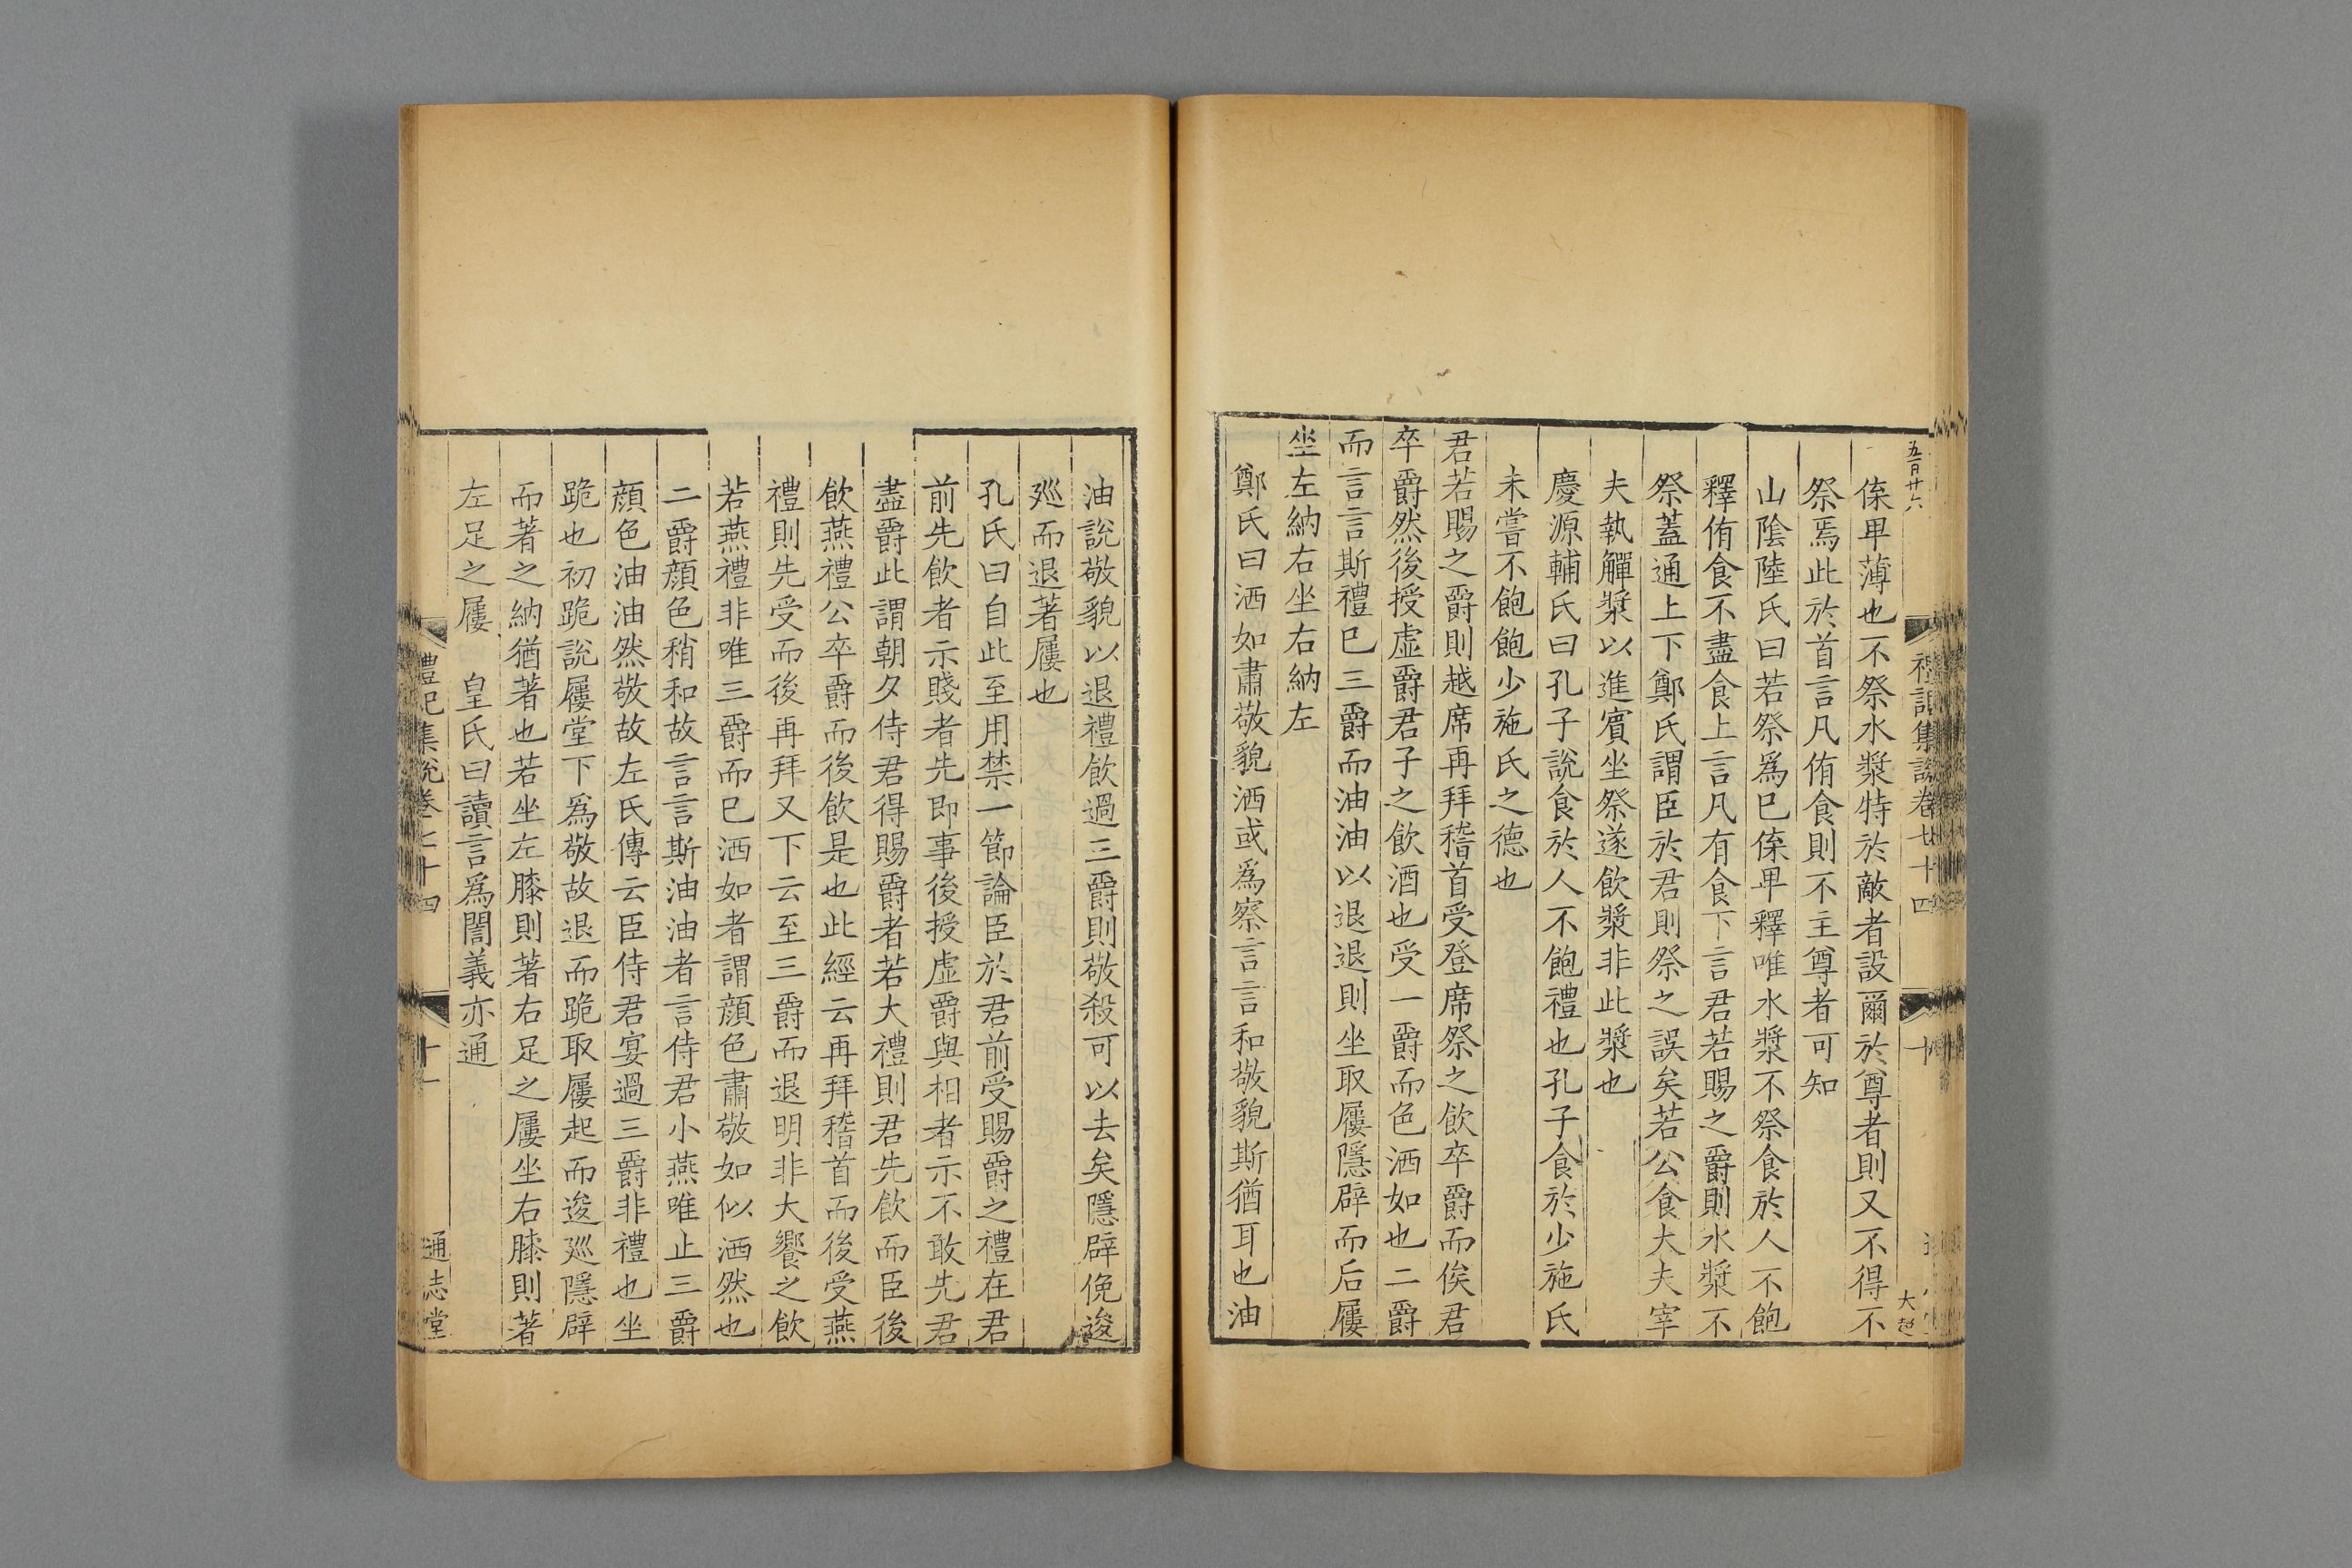 五百廿六
禮記集說卷七十四
十
大㐖
傣𤰞薄也不祭水漿特於敵者設爾於尊者則又不得不
祭焉此於首言凡侑食則不主尊者可知
山陰陸氏曰若祭爲巳傣𤰞釋唯水漿不祭食於人不飽
釋侑食不盡食上言凡有食下言君若賜之爵則水漿不
祭蓋通上下鄭氏謂臣於君則祭之誤矣若公食大夫宰
夫執觶漿以進賓坐祭遂飲漿非此漿也
慶源輔氏曰孔子說食於人不飽禮也孔子食於少施氏
未嘗不飽飽少施氏之德也
君若賜之爵則越席再拜稽首受登席祭之飲卒爵而俟君
卒爵然後授虛爵君子之飲酒也受一爵而色洒如也二爵
而言言斯禮巳三爵而油油以退退則坐取屨隱辟而后屨
坐左納右坐右納左
鄭氏曰洒如肅敬貌洒或爲察言言和敬貌斯猶耳也油
油說敬貌以退禮飲過三爵則敬殺可以去矣隱辟俛逡
廵而退著屨也
孔氏曰自此至用禁一節論臣於君前受賜爵之禮在君
前先飲者示賤者先即事後授虛爵與相者示不敢先君
盡爵此謂朝夕侍君得賜爵者若大禮則君先飲而臣後
飲燕禮公卒爵而後飲是也此經云再拜稽首而後受燕
禮則先受而後再拜又下云至三爵而退明非大饗之飲
若燕禮非唯三爵而巳洒如者謂顔色肅敬如似洒然也
二爵顔色稍和故言言斯油油者言侍君小燕唯止三爵
顔色油油然敬故左氏傳云臣侍君宴過三爵非禮也坐
跪也初跪說屨堂下爲敬故退而跪取屨起而逡廵隱辟
而著之納猶著也若坐左膝則著右足之屨坐右膝則著
左足之屨　皇氏曰讀言爲誾義亦通
禮記集說卷七十四
十一
通志堂